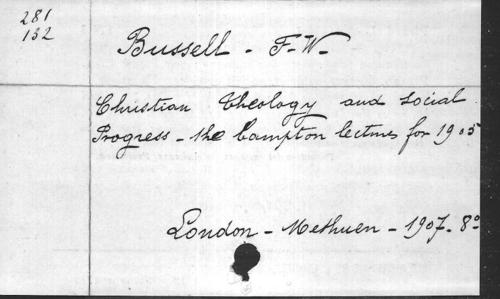 281
132
Bussell - F-W-
Christian Theology and Social
Progress - the bampton lectures for 1905
London - Methuen - 1907- 8º